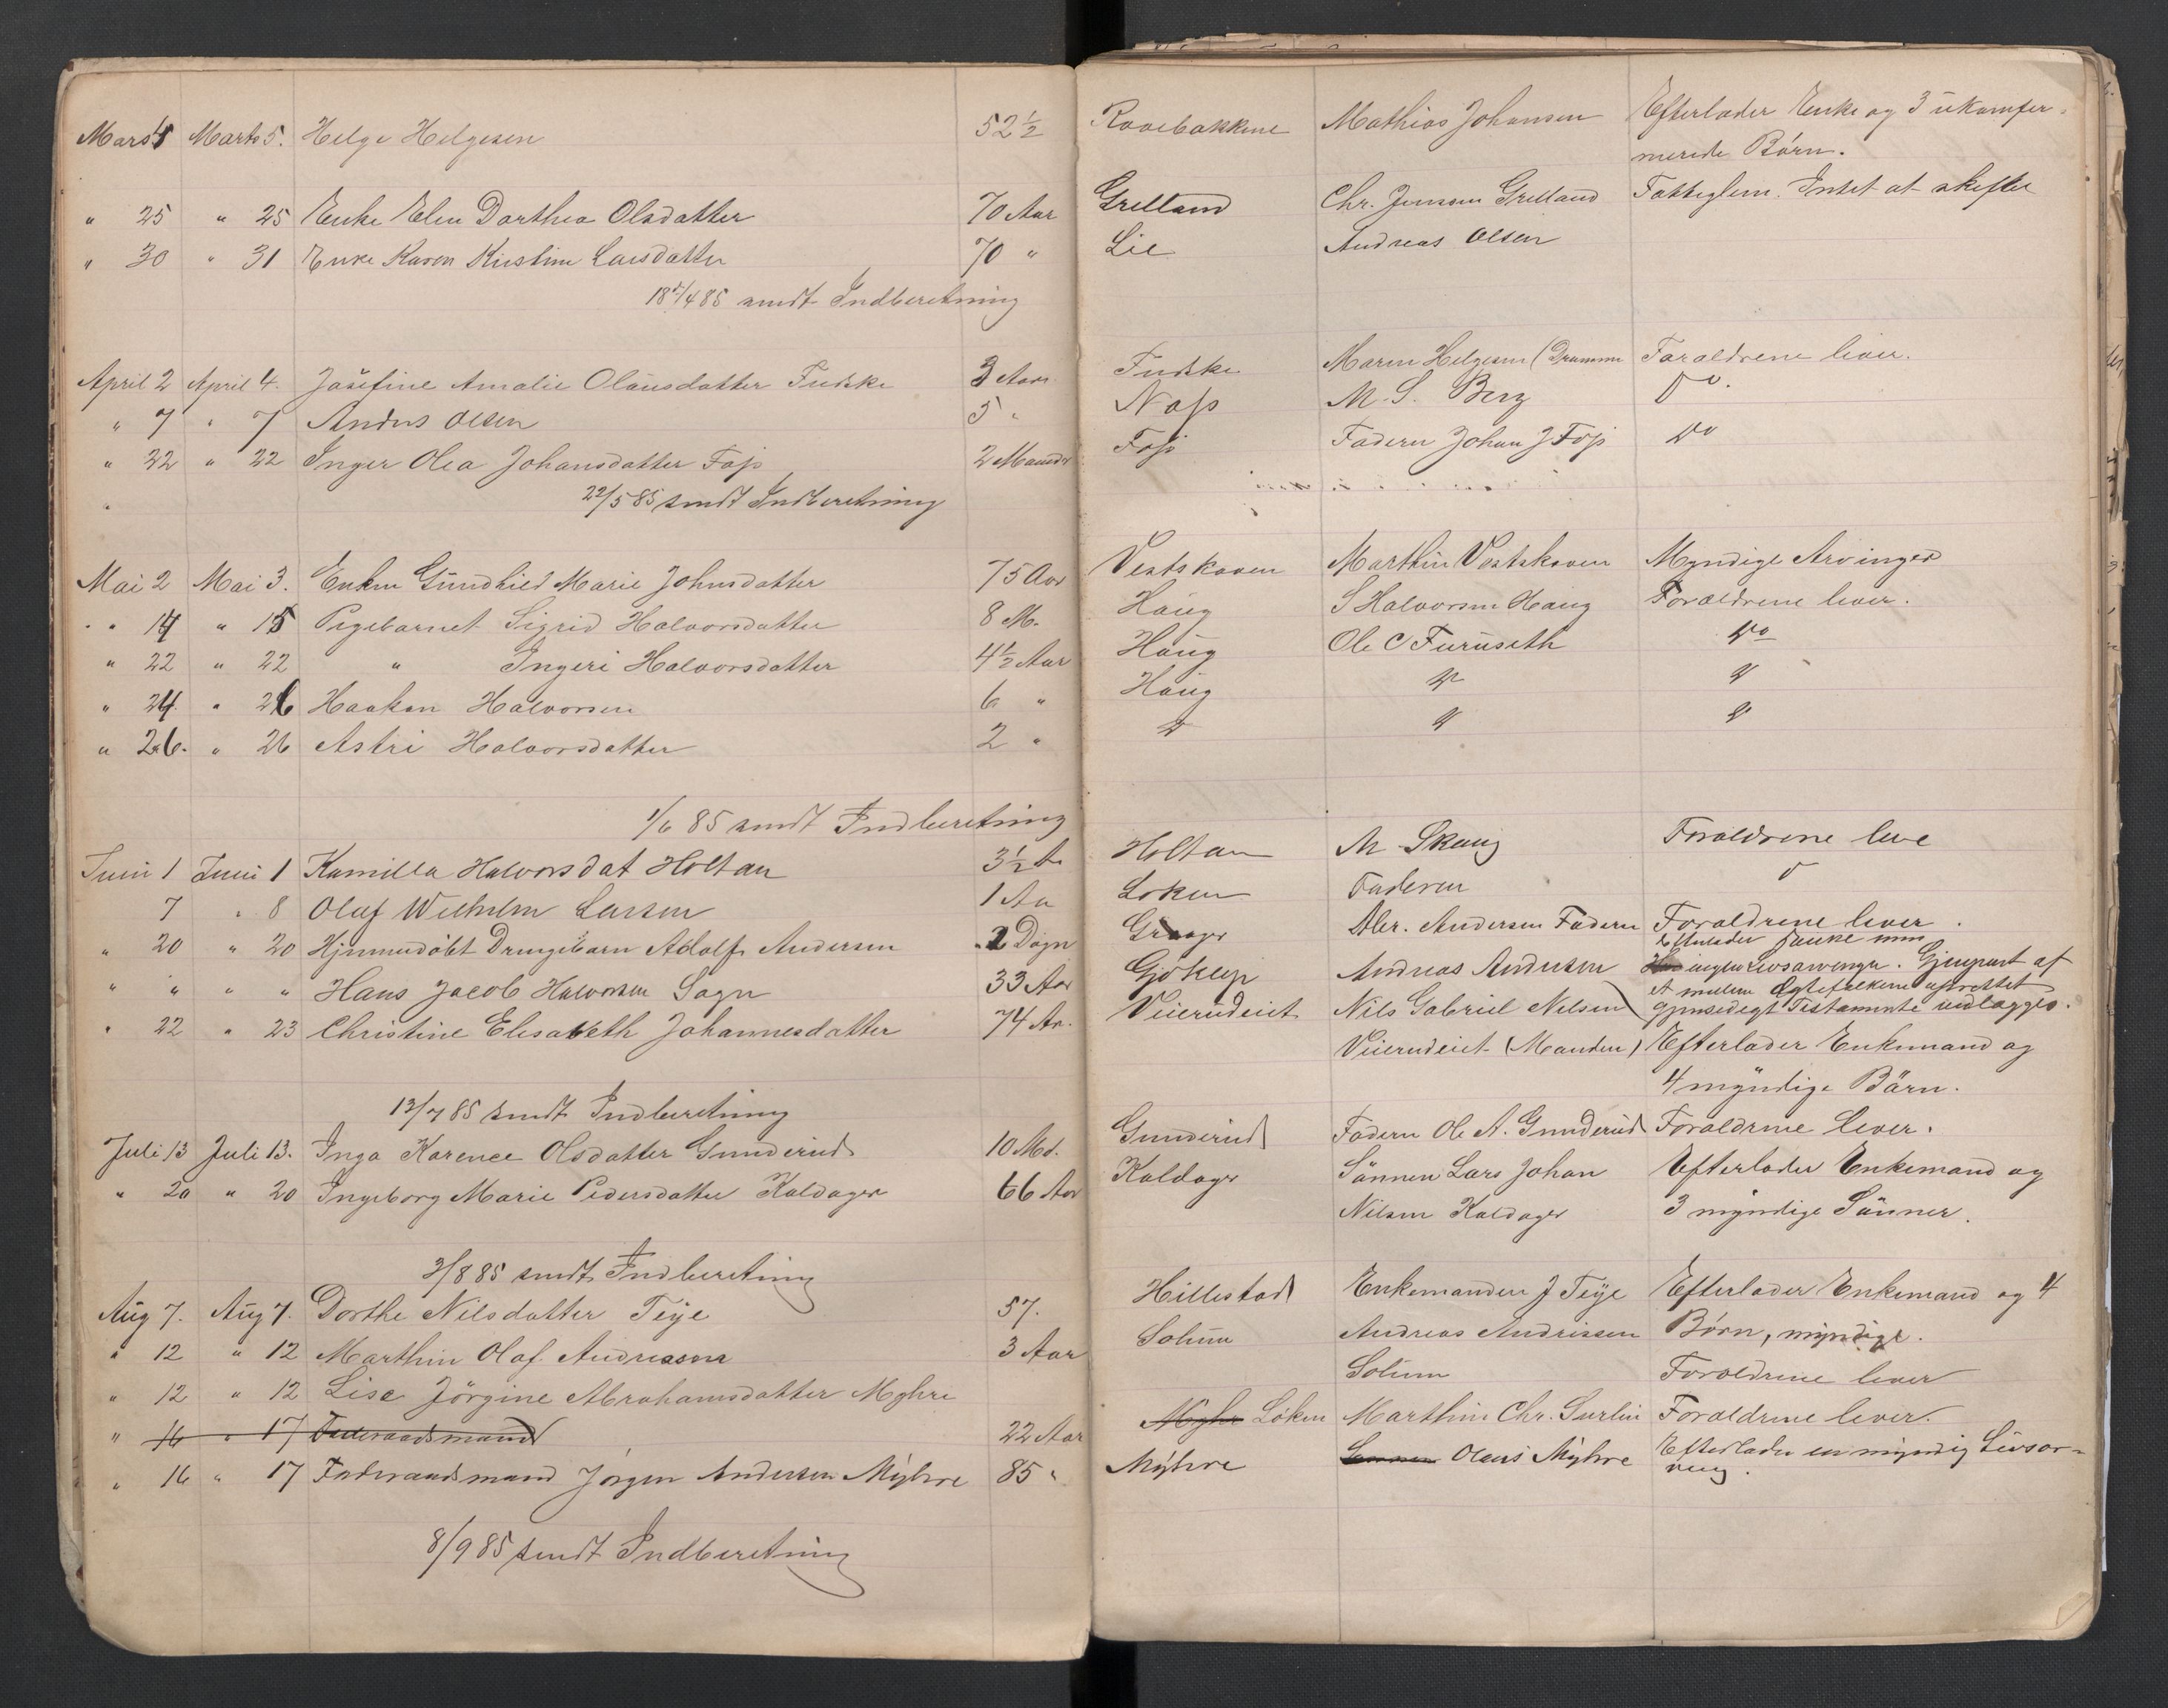 Mars 4 Marts 5. Helge Helgesen 52 1/2 Raaebakkene Mathias Johansen Efterlader Enke og 3 ukonfer-
merede Børn.
" 25 " 25 Enke Elen Dorthea Olsdatter 70 Aar Grelland Chr. Jensen Grelland Fattiglem. Intet at skifte
" 30 " 31 Enke Karen Kirstine Larsdatter 70 " Lie Andreas Olsen
85 sendt Indberetning
April 2 April 4. Josefine Amalie Olausdatter Tudske 3 Aar Tudske Maren Helgesen (Drammen Foraldrene liver.
" 7 " 7 Andres Olsen 5 " Nass M. S. Berg Do.
" 22 " 22 Inger Olea Johansdatter Foss 2 Maaned Foss Faderen Johan J Foss Do
22/5 85 sendt Indberetning
Mai 2 Mai 3. Enken Gundhild Marie Johnsdatter 75 Aar Vestskoven Marthin Vestskoven Myndige Arvinger
" 14 " 15 Pigebarnet Sigrid Halvorsdatter 8 M. Haug S Halvorsen Haug Foraldrene lever.
" 22 " 22 " Ingeri Halvorsdatter 4 1/2 Aar Haug Ole C Furuseth Do
" 24 " 26 Haakon Halvorsen 6 " Haug D D
" 26. " 26 Astri Halvorsdatter 2 " D D D
1/6 85 sendt Indberetning
Juni 1 Juni 1 Kamilla Halvorsdat Holtan 3 1/2 A. Holtan M Skaug Foraldrene leve
7 " 8 Oluf Wilhelm Larsen 1 Aa Loken Faderen D
" 20 " 20 Hjemmedøbt Drengebarn Adolf Andersen 2 Døgn Graager Alex. Andersen Faderen Foraldrene lever.
Efterlader Enke men
" " " " Hans Jacob Halvorsen Sogn 33 Aar Gjøklep Andreas Andersen ingen Livsarvinger. Gjenpart af
et mellem Ægtefolkene oprettet
" 22 " 23 Christine Elisabeth Johannesdatter 74 Ar. Veierudeiet Nils Gabriel Nilsen gjensidigt Testamente vedlægges.
Veierudeiet (Manden) Efterlader Enkemand og
4 myndige Bärn.
13/7 85 sendt Indberetning
Juli 13 Juli 13. Inga Karence Olsdatter Gunderud 10 Md. Gunderud Faderen Ole A. Gunderud Foraldrene lever.
" 20 " 20 Ingeborg Marie Pedersdatter Kaldager 66 Aar Kaldager Sännen Lars Johan Efterlader Enkemand og
Nilsen Kaldager 3 myndige Sänner.
3/8 85 sendt Indberetning
Aug 7. Aug 7. Dorthe Nilsdatter Teye 57. Hillestad Enkemanden J Teye Efterlader Enkemand og 4
" 12 " 12 Marthin Olaf Andreasen 3 Aar Solum Andreas Andreasen Børn, myndige.
Solum Foraldrene lever
" 12 " 12 Lise Jörgine Abrahamsdatter Myhre
" 16 " 17 Føderaadsmand 22 Aar Myhre Løken Marthin Chr. Foraldrene lever.
" 16 " 17 Føderaadsmand Jørgen Andersen Myhre 85 " Myhre Sønnen Olaus Myhre Efterlader en myndig Livsar-
ving.
8/9 85 sendt Indberetning